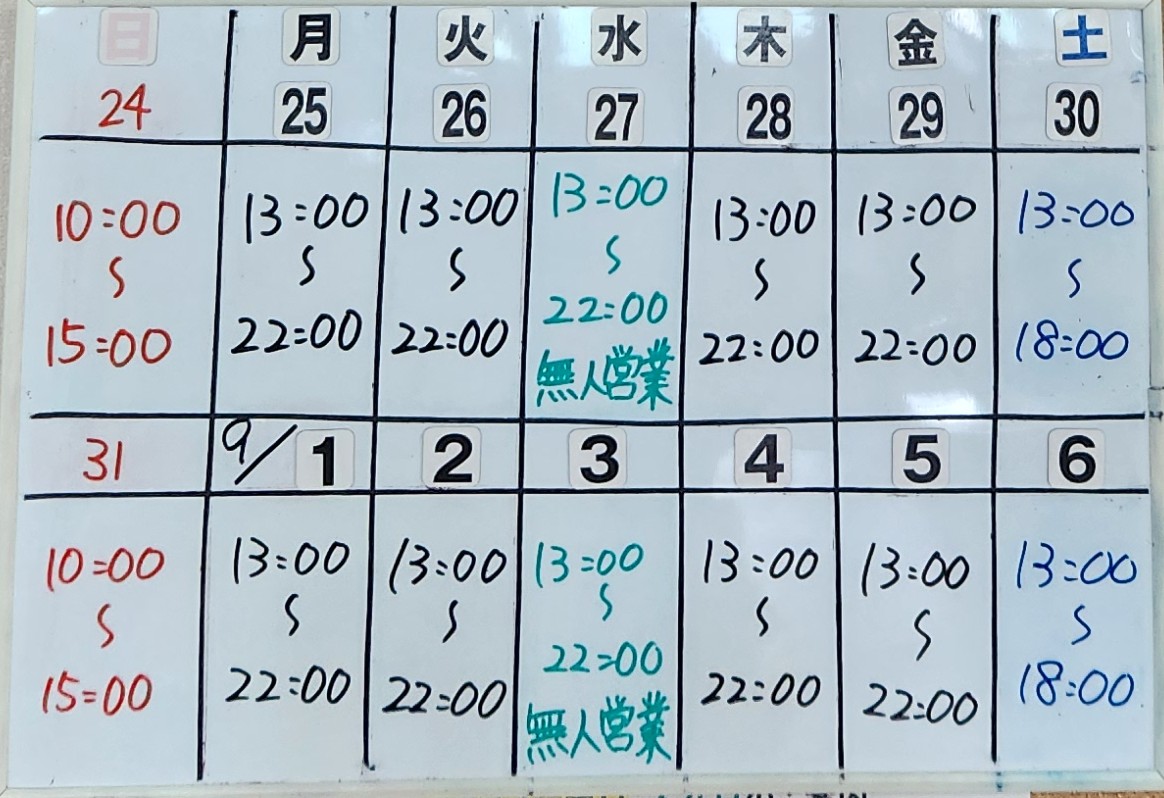 日 月 火 水 木 金 土
24 25 26 27 28 29 30
10:00 13:00 13:00 13:00 13:00 13:00 13:00
〜 〜 〜 〜 〜 〜 〜
15:00 22:00 22:00 22:00 22:00 22:00 18:00
無人営業
31 9/1 2 3 4 5 6
10:00 13:00 13:00 13:00 13:00 13:00 13:00
〜 〜 〜 〜 〜 〜 〜
15:00 22:00 22:00 22:00 22:00 22:00 18:00
無人営業